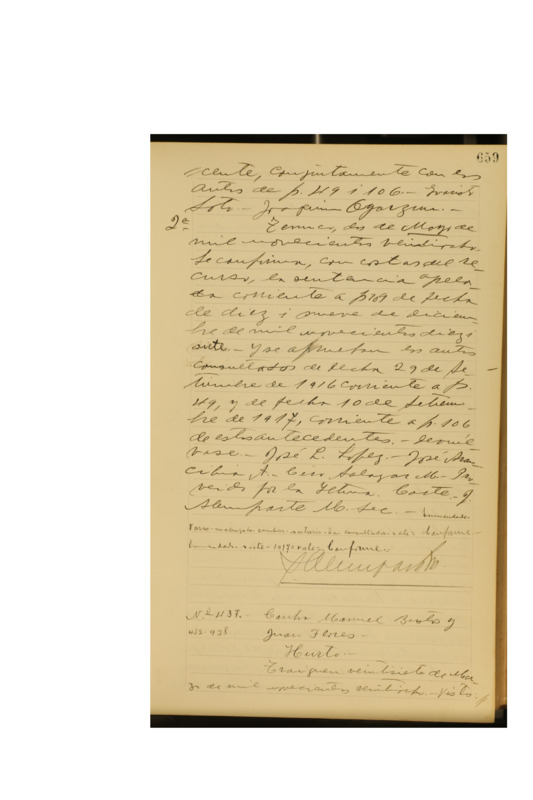 659
cente, conjuntamente con los
autos de f. 49 i 106.- Evaristo
Soto.- Joaquin Oyarzun.-
2ª
Temuco, dos de Mayo de
mil novecientos veintiocho.
Se confirma, con costas del re-
curso, la sentencia apela-
da corriente a f 109 de fecha
de diez i nueve de diciem-
bre de mil novecientos diez i
siete.- Y se aprueban los autos
consultados de fecha 29 de Se-
tiembre de 1916 corriente a f.
49, y de fecha 10 de Setiem-
bre de 1917, corriente a f. 106
de estos antecedentes.- Devuél-
vase.- José L. Lopez.- José Aran-
cibia A.- Ciro Salazar M.- Pro-
veido por la Iltma. Corte.- J.
Alemparte M. Sec.- Enmendado
vale- Conforme.-
Enmendado- siete- 1917- vale- Conforme.-
JAlemparte M
N.º 437.- Contra Manuel Bustos y
Juan Flores.-
Hurto.-
Traiguen veintisiete de Mar-
zo de mil novecientos veintiocho.- Vistos: